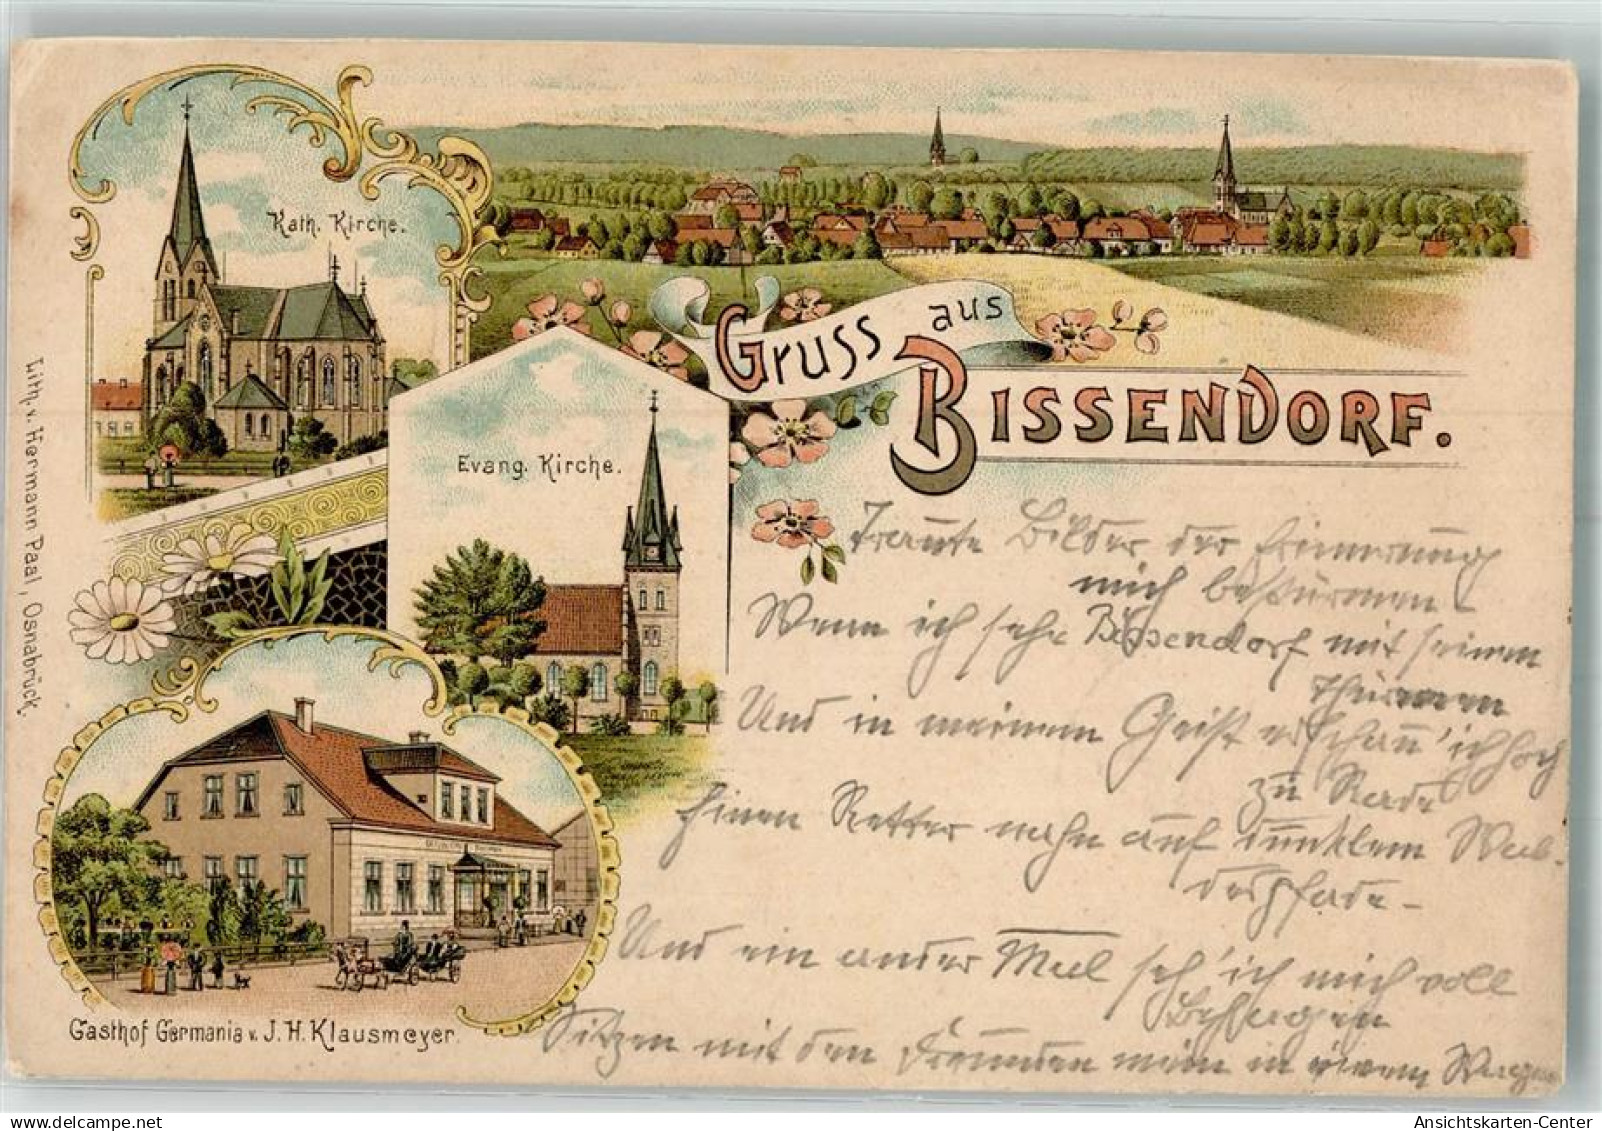 Kath. Kirche.
Gruss aus
Bissendorf.
Evang. Kirche.
Lith. v. Hermann Paal, Osnabrück.
Traute Bilder der Erinnerung
mich bestürmen
Wenn ich sehe Bissendorf mit seinen
Thürmen
Und in meinem Geist erschau' ich hoch
zu Rade
Einen Retter nahn auf dunklem Wal-
despfade -
Und ein ander Mal seh' ich mich voll
Behagen
Sitzen mit den Freunden mein in Wagen
Gasthof Germania v. J. H. Klausmeyer.
Ansichtskarten-Center